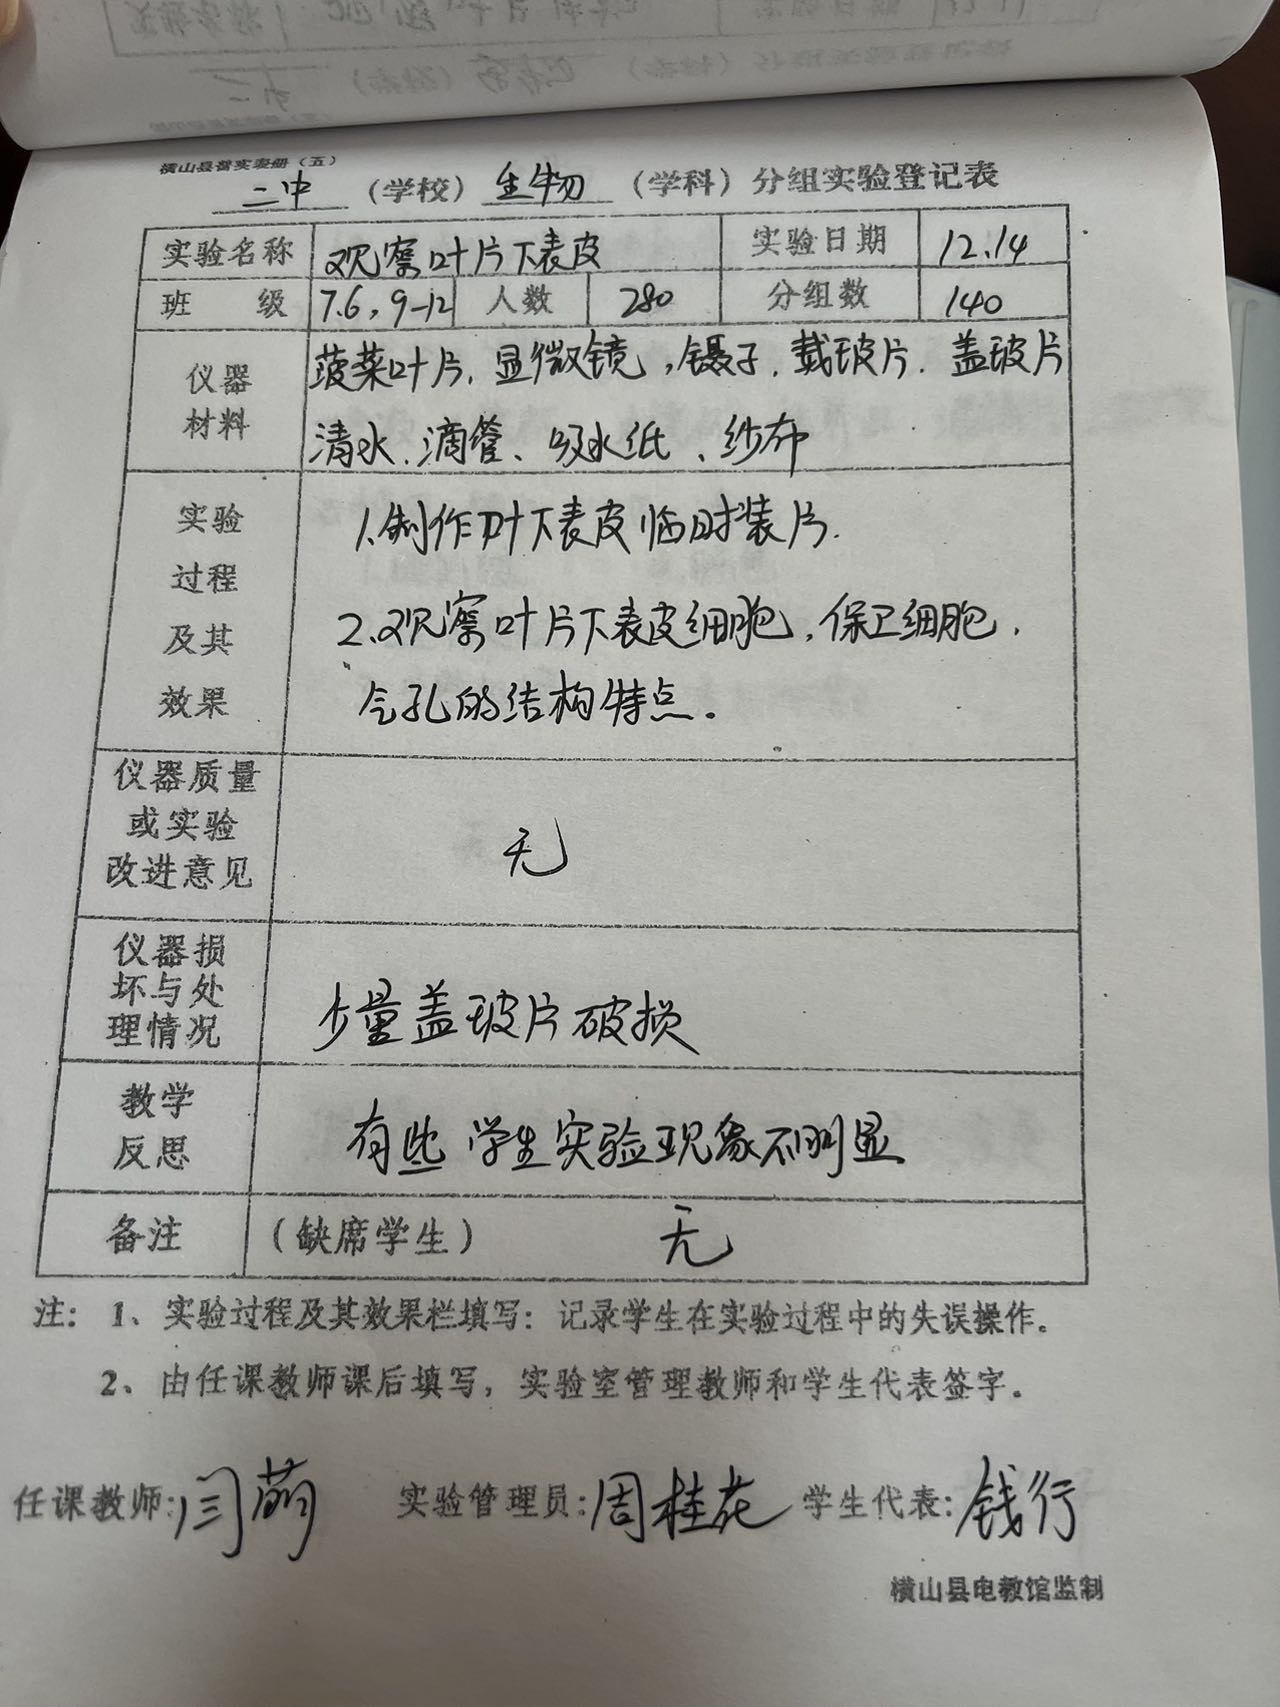 横山县普实表册（五）
二中（学校）生物（学科）分组实验登记表
实验名称 观察叶片下表皮 实验日期 12.14
班 级 7.6，9-12 人数 280 分组数 140
仪器 菠菜叶片．显微镜，镊子．载玻片．盖玻片
材料 清水．滴管、吸水纸、纱布
实验 1.制作叶下表皮临时装片．
过程
及其 2.观察叶片下表皮细胞，保卫细胞．
效果 气孔的结构特点．
仪器质量
或实验 无
改进意见
仪器损
坏与处
理情况 少量盖玻片破损
教学
反思 有些学生实验现象不明显
备注 （缺席学生） 无
注： 1、实验过程及其效果栏填写：记录学生在实验过程中的失误操作。
2、由任课教师课后填写，实验室管理教师和学生代表签字。
任课教师：闫萌 实验管理员：周桂花 学生代表：钱行
横山县电教馆监制